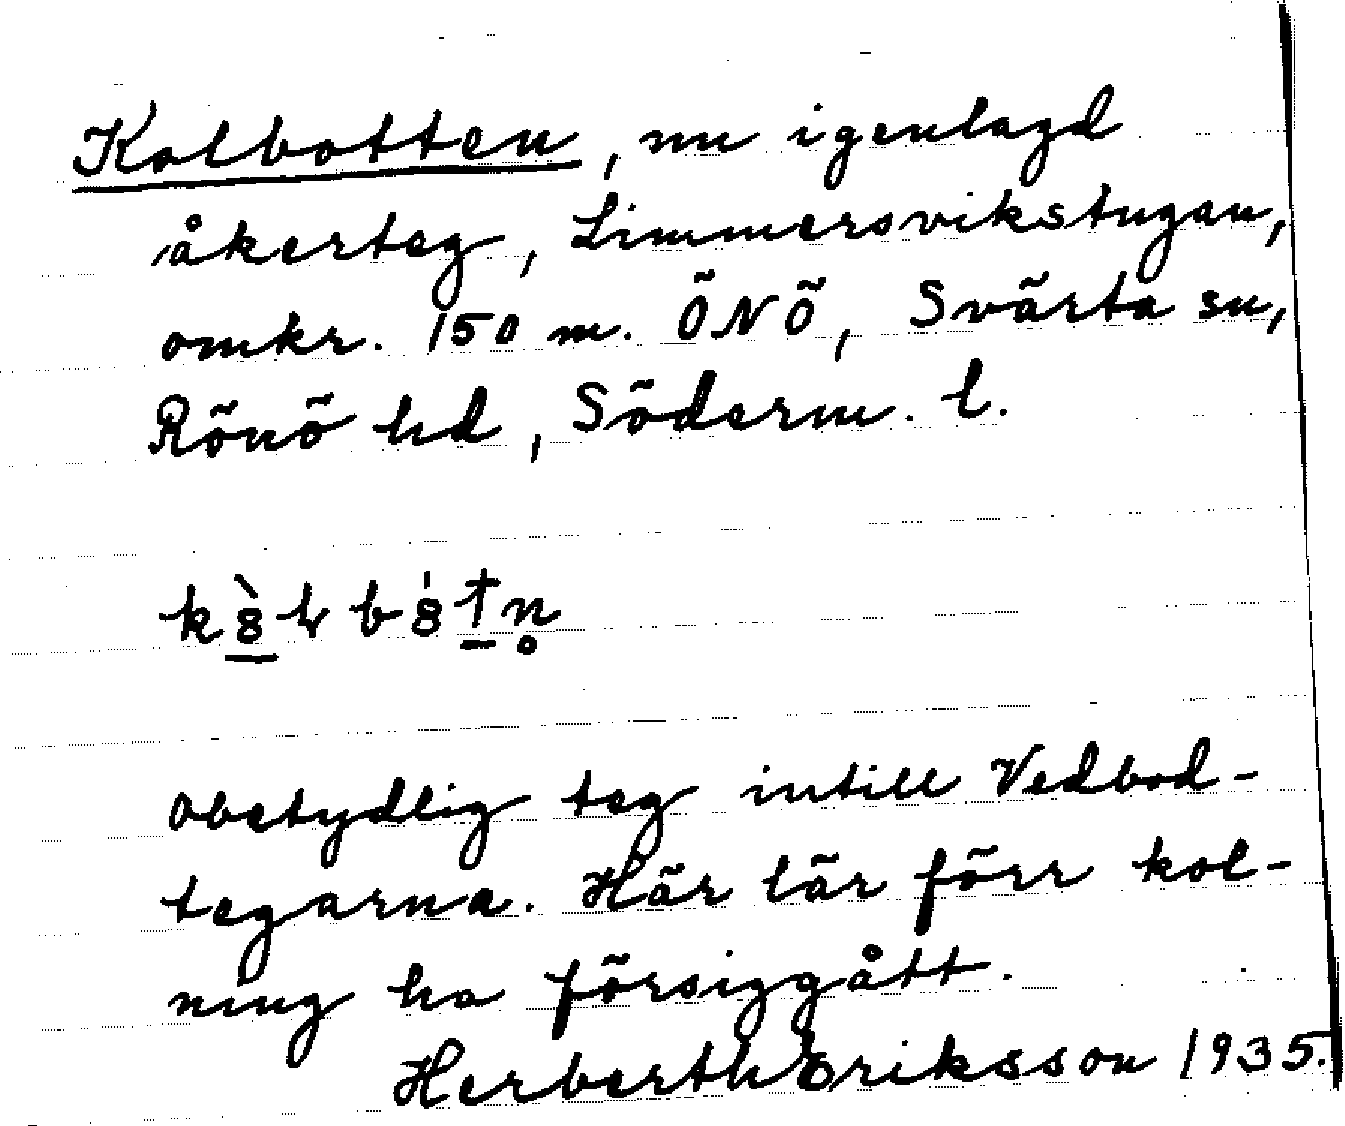 Kolbotten, nu igenlagd
åkerteg, Limmersvikstugan,
omkr. 150 m. ÖNÖ, Svärta sn,
Rönö hd, Söderm. l.
Obetydlig teg intill Vedbod-
tegarna. Här lär förr kol-
ning ha försiggått.
Herberth Eriksson 1935.